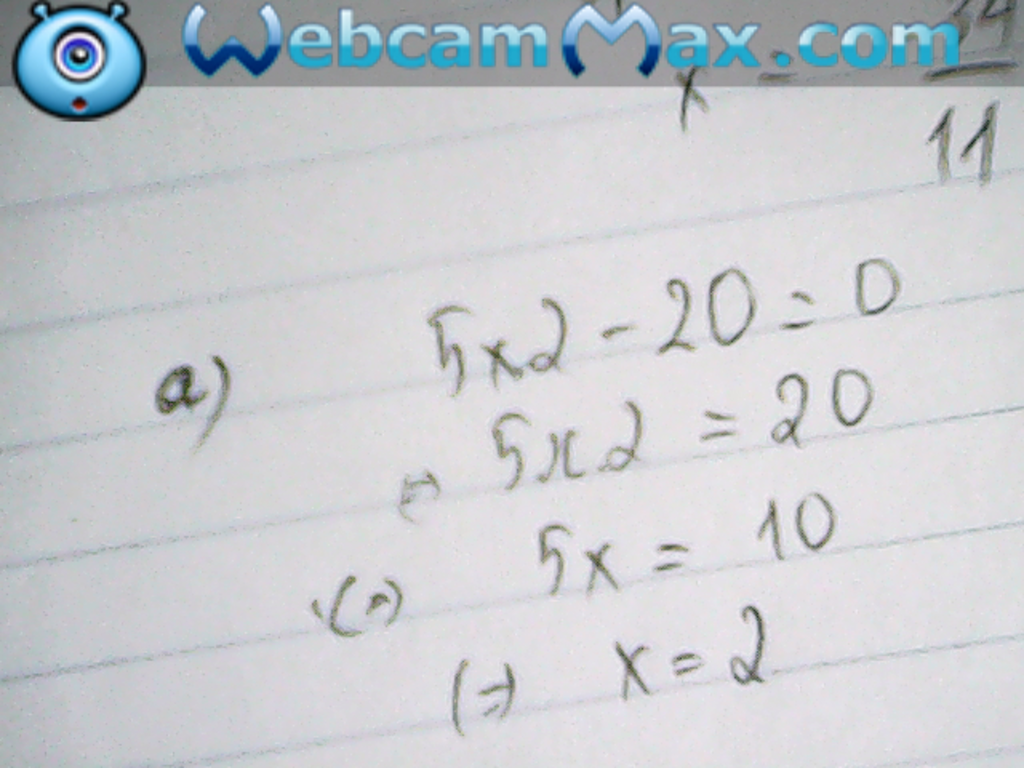 WebcamMax.com
x =
11
a) 5x2 - 20 = 0
5x2 = 20
(=) 5x = 10
(=) x = 2